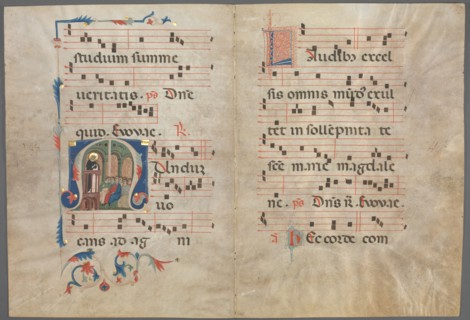 studium summe
ueritatis. ps Dñe
quid. Euouae. R.
uo
cans ad ag ni
Laudibꝫ excel
sis omnis mūdꝰ exul
tet in sollēpnita te
scē marie magdale
ne. ps Dñs r̄. Euouae.
a Nec corde com